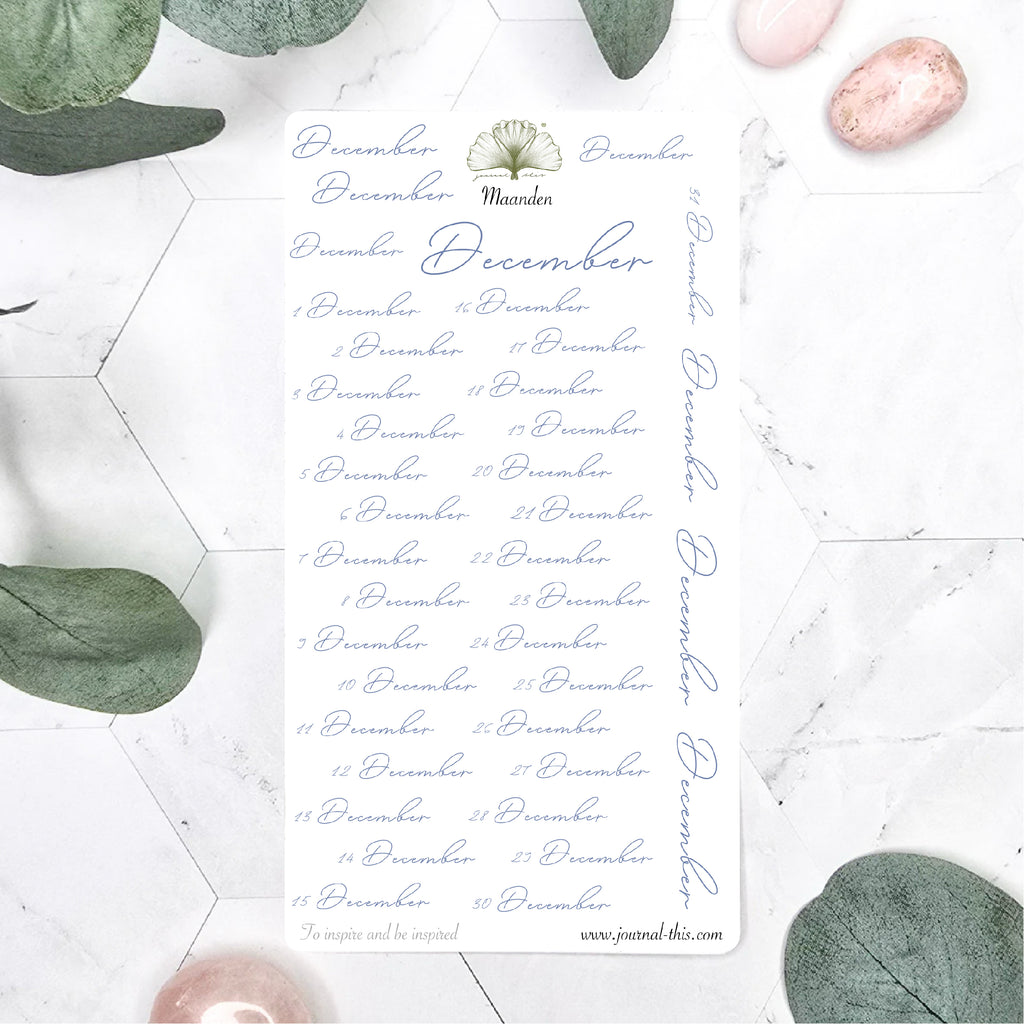 December
December
journal this
Maanden
December
December
December
1 December
16 December
2 December
17 December
3 December
18 December
4 December
19 December
5 December
20 December
6 December
21 December
7 December
22 December
8 December
23 December
9 December
24 December
10 December
25 December
11 December
26 December
12 December
27 December
13 December
28 December
14 December
29 December
15 December
30 December
31 December
December
December
December
To inspire and be inspired
www.journal-this.com